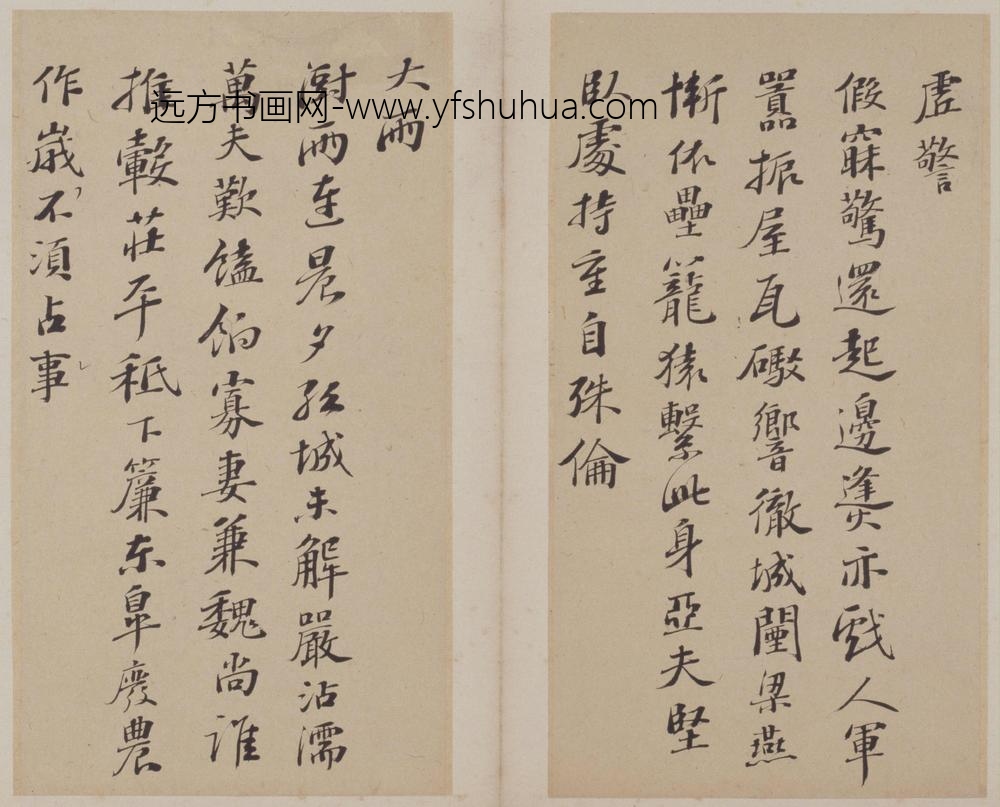 虛警
假寐驚還起邊㷭亦戲人軍
囂振屋瓦礮響徹城闉梁燕
慚依壘籠猿繫此身亞夫堅
臥處持重自殊倫
大雨
澍雨連晨夕孤城未解嚴沾濡
萬夫歎饁餉寡妻兼魏尚誰
推轂莊平秖下簾東皋廢農
作歲不須占事
远方书画网-www.yfshuhua.com